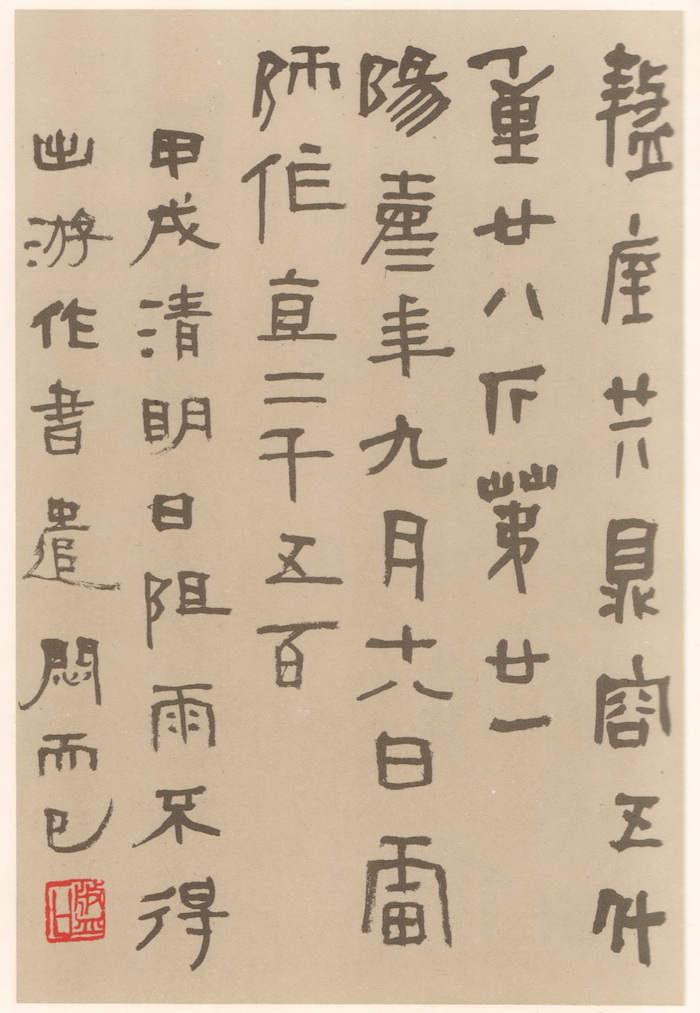 盩厔共鼎容五斗
重廿八斤第廿一
陽嘉三年九月十八日雷
師作直二千五百
甲戌清明日阻雨不得
出游作書遣悶而已